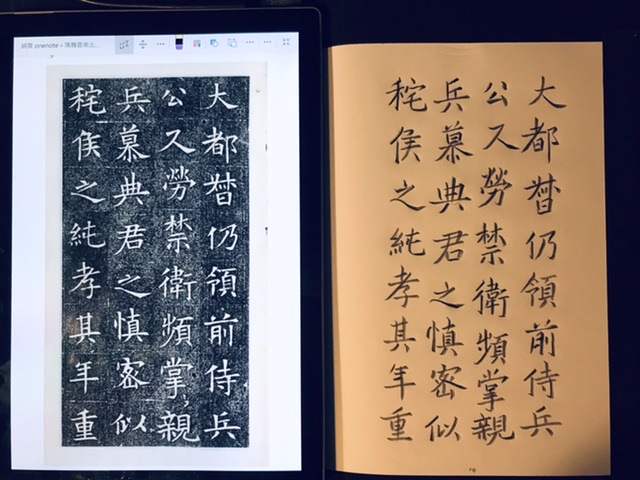 onenote
大都督仍領前侍兵
公又勞禁衛頻掌親
兵慕典君之慎密似
秺侯之純孝其年重
大都督仍領前侍兵
公又勞禁衛頻掌親
兵慕典君之慎密似
秺侯之純孝其年重